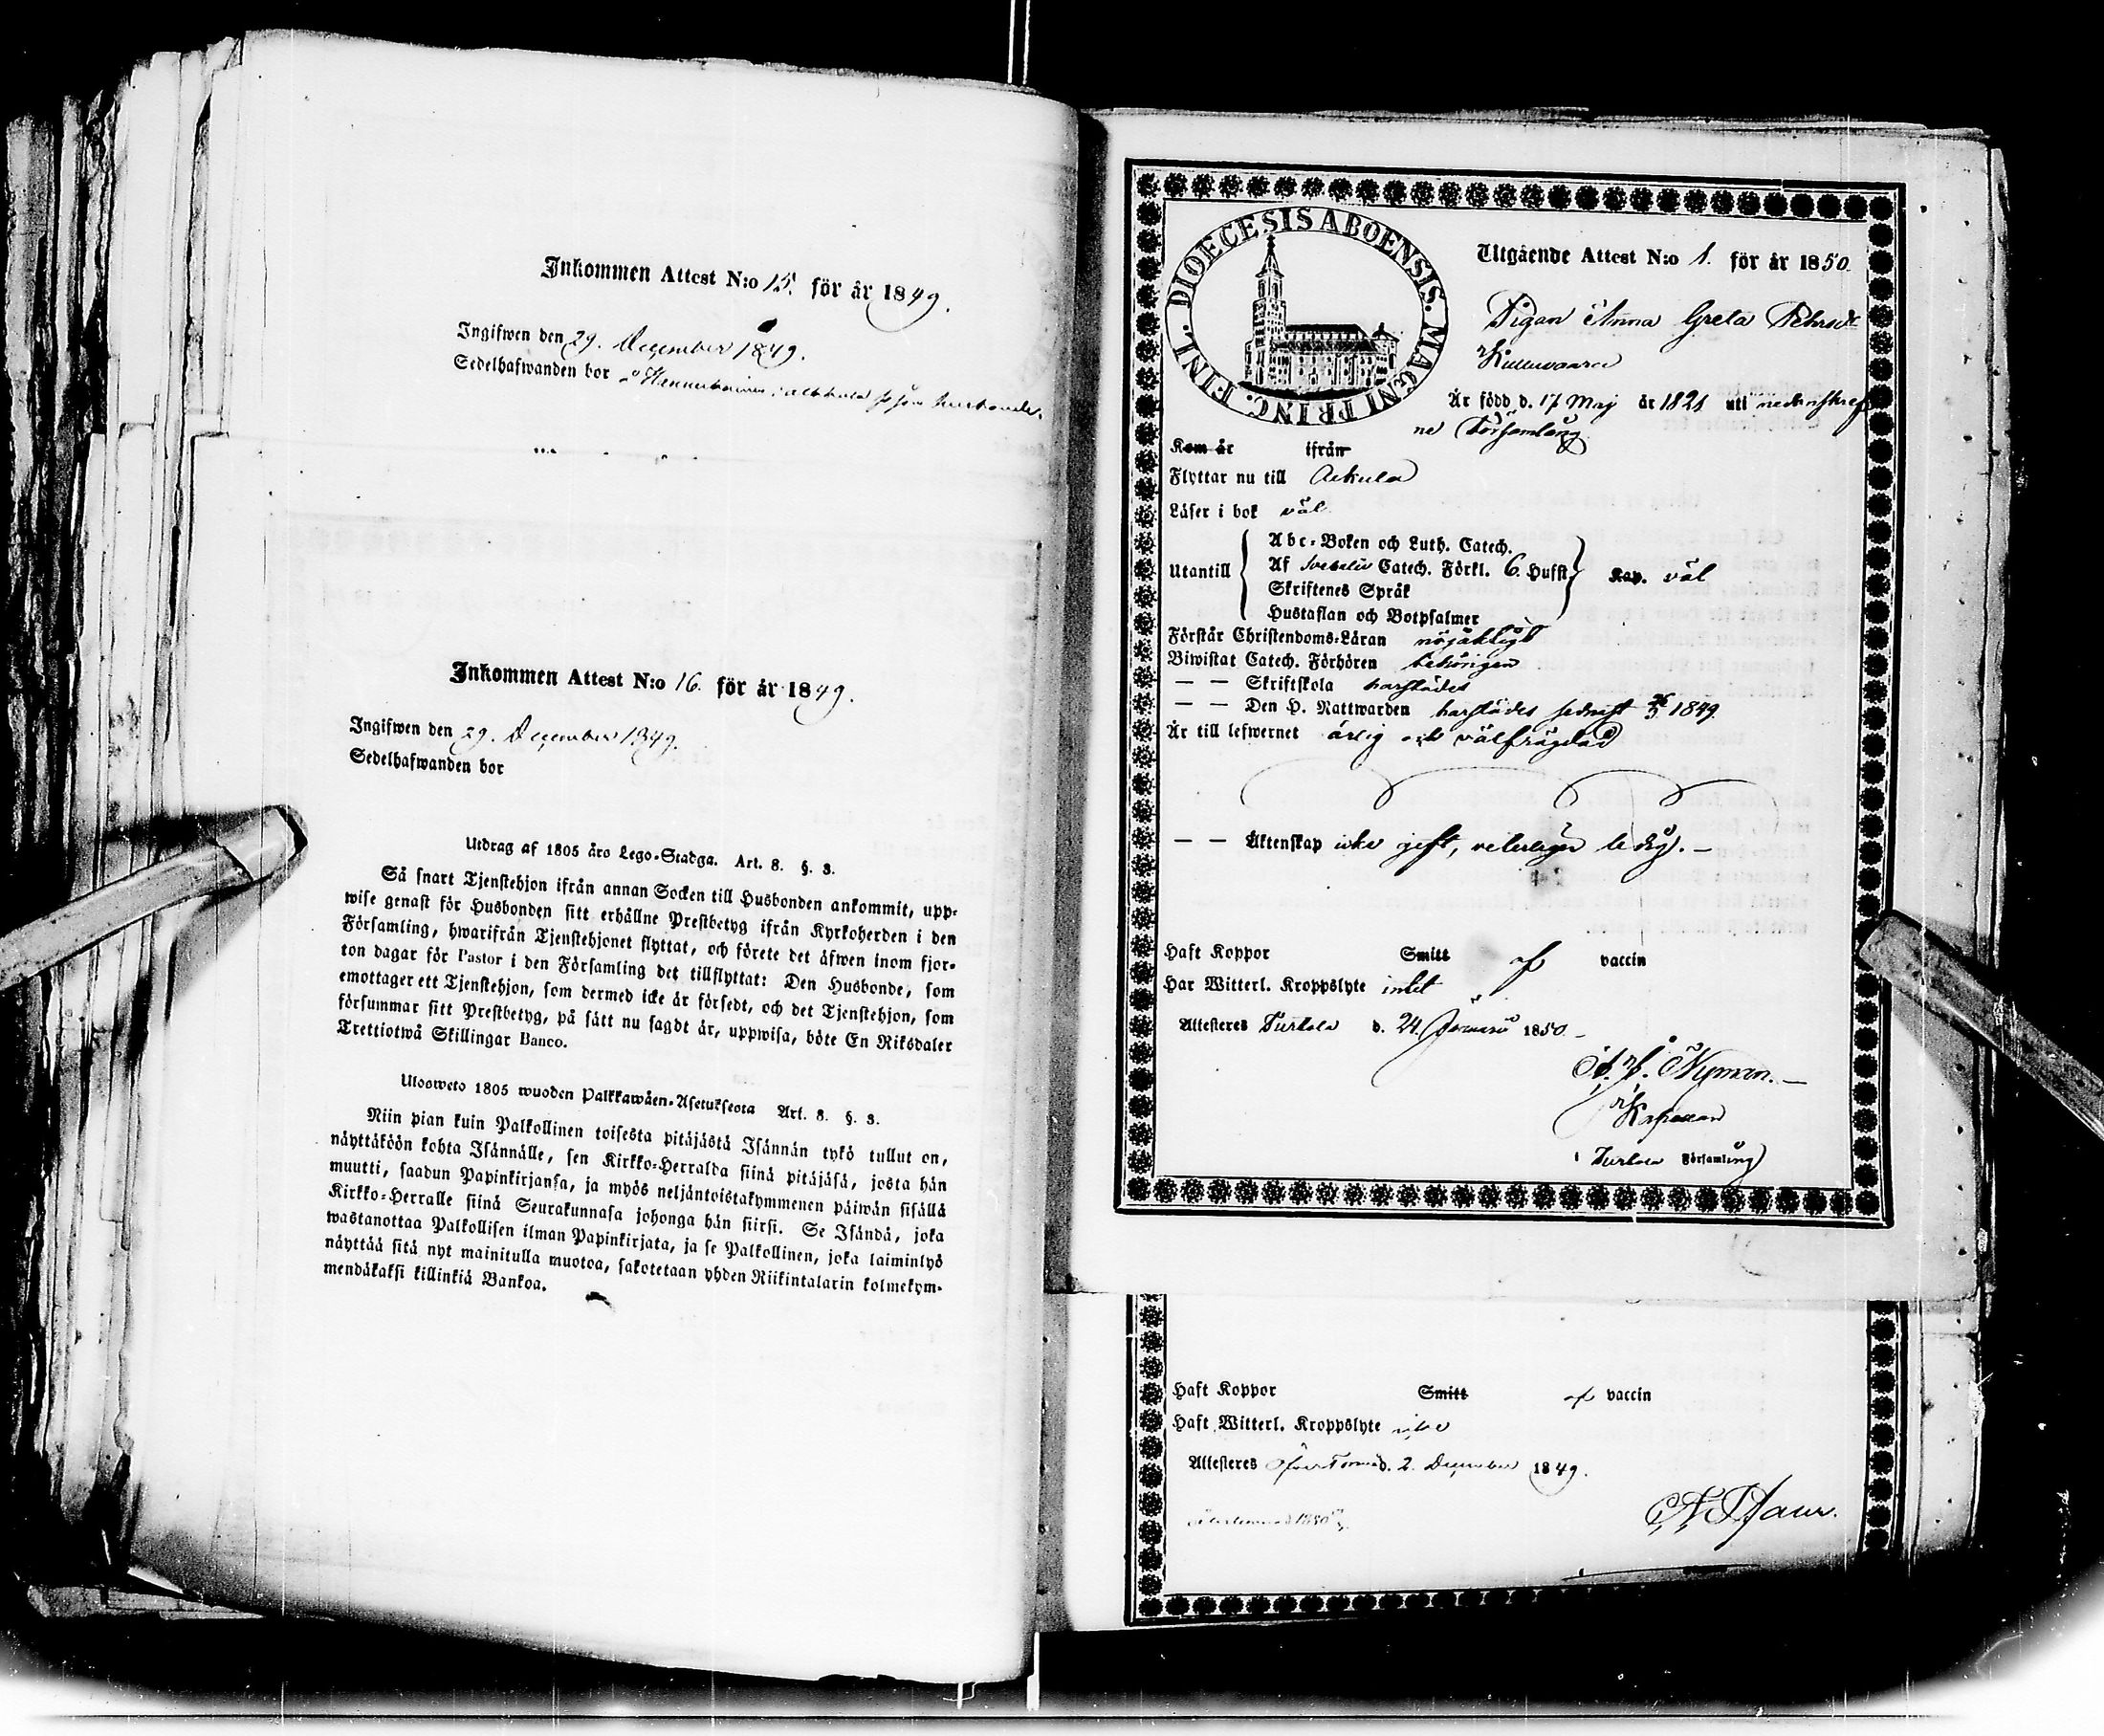 Inkommen Attest N:o 15. för år 1849.
Ingifwen den 29. December 1849.
Sedelhafwanden bor
Inkommen Attest N:o 16. för år 1849.
Ingifwen den 29. December 1849.
Sedelhafwanden bor
Utdrag af 1805 års Lego-Stadga. Art. 8. §. 3.
Så snart Tjenstehjon ifrån annan Socken till Husbonden ankommit, upp-
wise genast för Husbonden sitt erhållne Prestbetyg ifrån Kyrkoherden i den
Församling, hwarifrån Tjenstehjonet flyttat, och förete det äfwen inom fjor-
ton dagar för Pastor i den Församling det tillflyttat: Den Husbonde, som
emottager ett Tjenstehjon, som dermed icke är försedt, och det Tjenstehjon, som
försummar sitt Prestbetyg, på sätt nu sagdt är, uppwisa, böte En Riksdaler
Trettiotwå Skillingar Banco.
Ulosweto 1805 wuoden Palkkawäen-Asetuksesta Art. 8. §. 3.
Niin pian kuin Palkollinen toisesta pitäjästä Isännän tykö tullut on,
näyttäköön kohta Isännälle, sen Kirkko-Herralda siinä pitäjäsä, josta hän
muutti, saadun Papinkirjansa, ja myös neljäntoistakymmenen päiwän sisällä
Kirkko-Herralle siinä Seurakunnasa johonga hän siirsi. Se Isändä, joka
wastanottaa Palkollisen ilman Papinkirjata, ja se Palkollinen, joka laiminlyö
näyttää sitä nyt mainitulla muotoa, sakotetaan yhden Riikintalarin kolmekym-
mendäkaksi killinkiä Bankoa.
DIOECESIS ABOENSIS. MAGNI PRINC. FINL.
Utgående Attest N:o 1. för år 1850.
Pigan Anna Greta Pehrsd:r
Kulluvaara
Är född d. 17 Maj år 1821 uti nedanskref
ne Församling.
Kom år ifrån
Flyttar nu till
Läser i bok väl
Utantill
Abc-Boken och Luth. Catech.
Af Svebelii Catech. Förkl. 6. Hufst.
Skriftenes Språk
Hustaflan och Botpsalmer
Kap. väl
Förstår Christendoms-Läran nöjaktigt
Biwistat Catech. Förhören behörigen
— — Skriftskola
— — Den H. Nattwarden 1849.
Är till lefwernet ärlig och välfrägdad
— — Äktenskap icke gift, veterligen ledig. —
Haft Koppor Smitt af vaccin
Har Witterl. Kroppslyte intet
Attesteres Turtola d. 24. Januarii 1850 —
Nyman. —
Kapellan
i Turtola Församling
Haft Koppor Smitt af vaccin
Haft Witterl. Kroppslyte
Attesteres d. 2. December 1849.